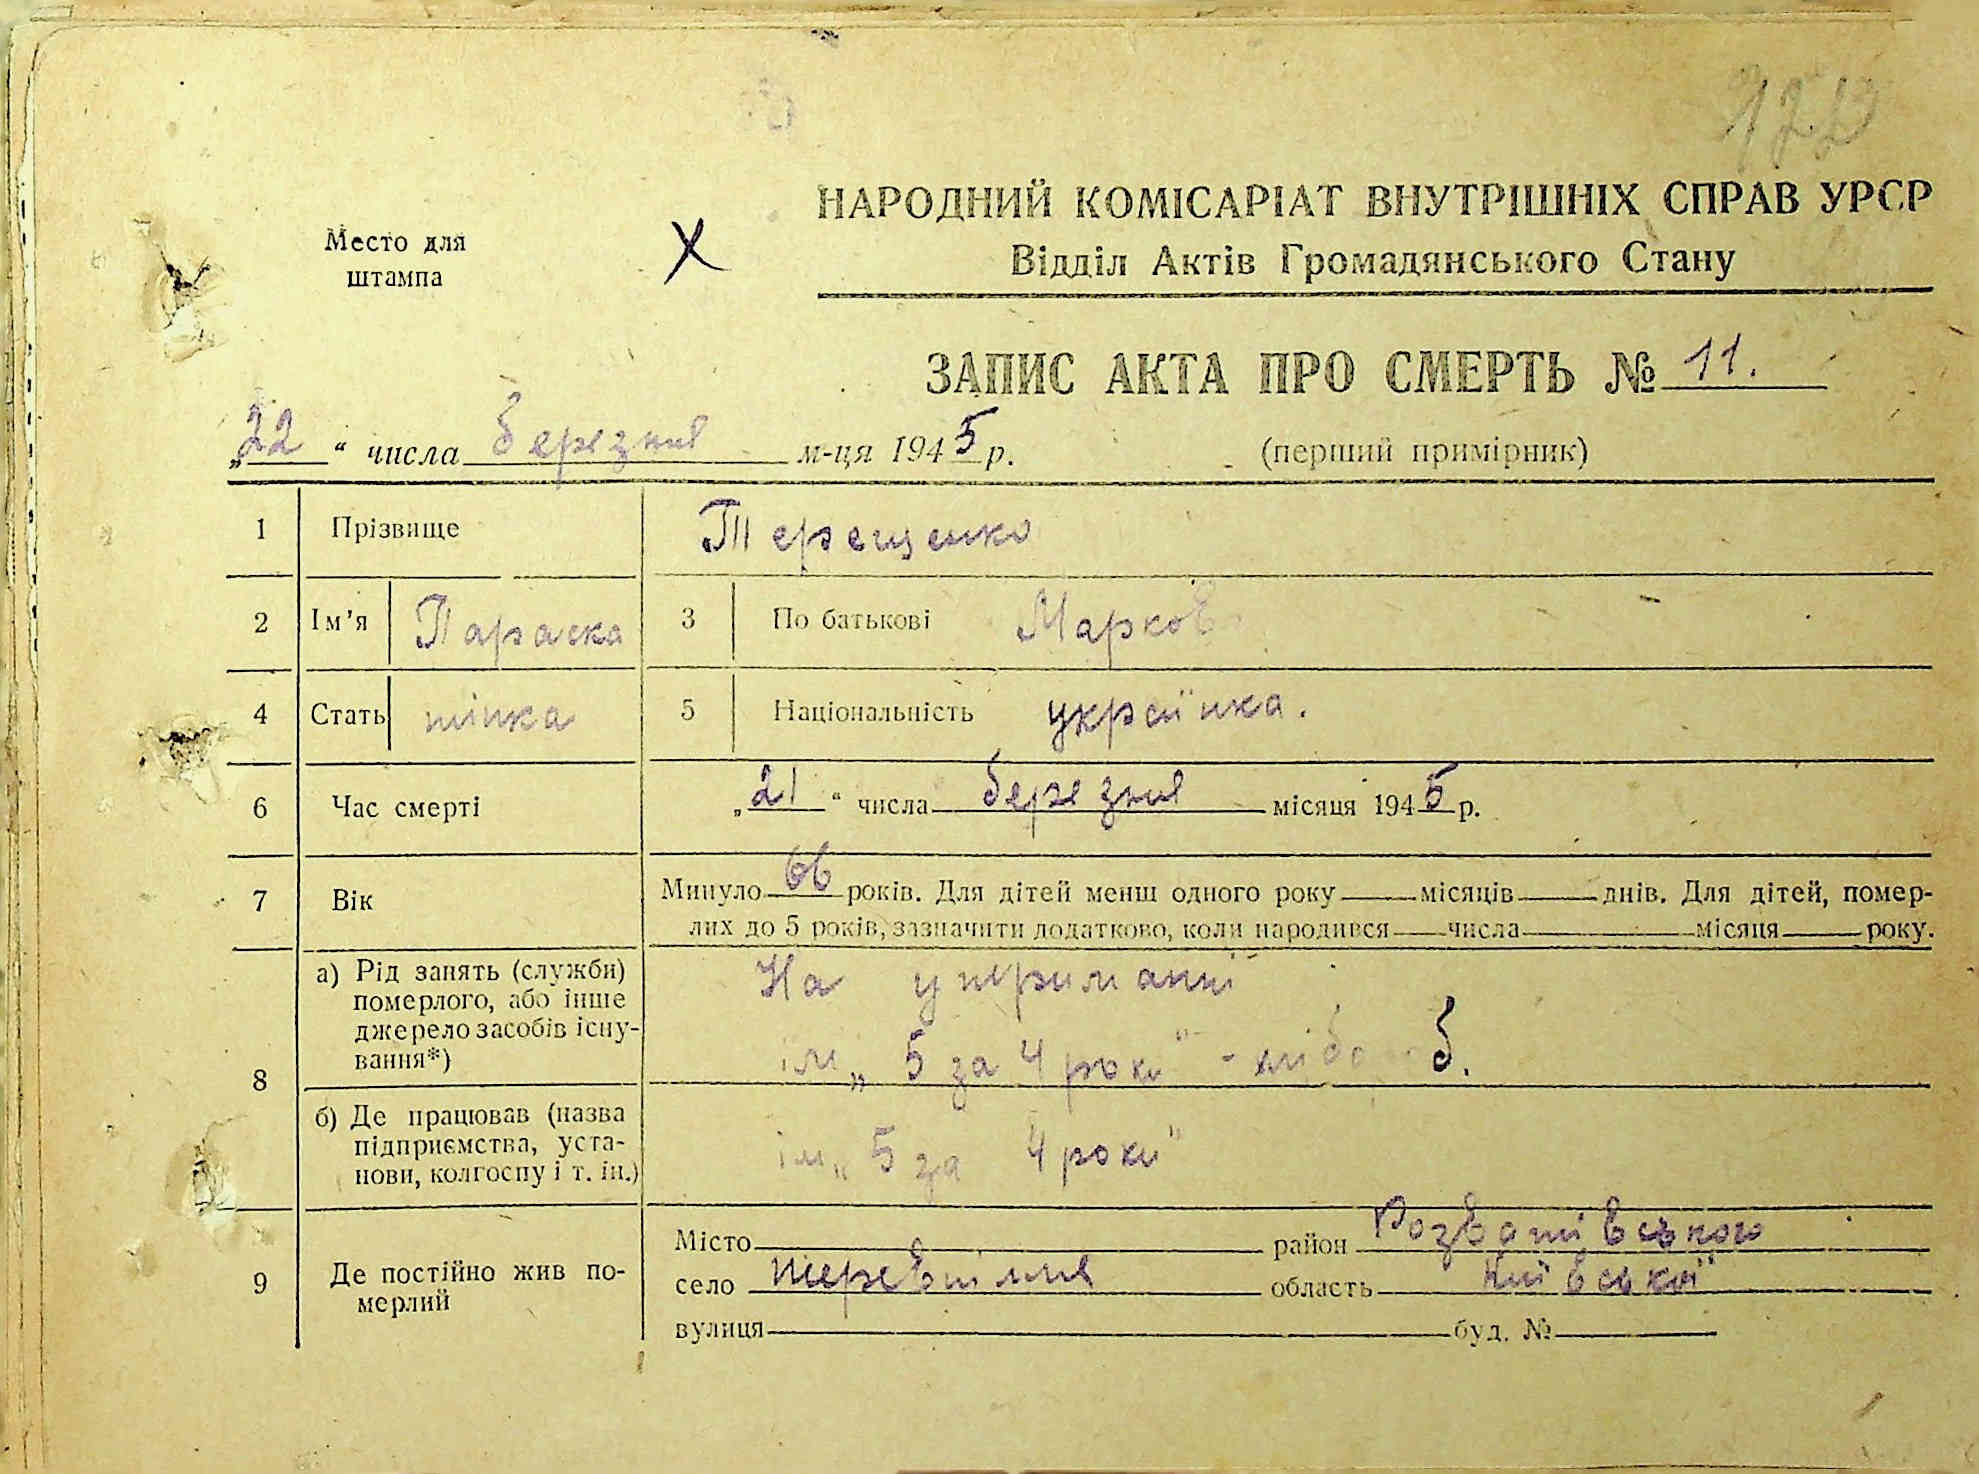 122
НАРОДНИЙ КОМІСАРІАТ ВНУТРІШНІХ СПРАВ УРСР
Место для штампа
X
Відділ Актів Громадянського Стану
ЗАПИС АКТА ПРО СМЕРТЬ № 11.
„22“ числа березня м-ця 1945 р. (перший примірник)
1 Прізвище Терещенко
2 Ім'я Параска 3 По батькові Марков
4 Стать жінка 5 Національність українка.
6 Час смерті „21“ числа березня місяця 1945 р.
7 Вік Минуло 66 років. Для дітей менш одного року місяців днів. Для дітей, помер-
лих до 5 років, зазначити додатково, коли народився числа місяця року.
8 а) Рід занять (служби) померлого, або інше джерело засобів існу-вання*) На утриманні
ім „5 за 4 роки" -
б) Де працював (назва підприємства, уста-нови, колгоспу і т. ін.) ім „5 за 4 роки"
9 Де постійно жив по-мерлий Місто район Розважівського
село область Київської
вулиця буд. №